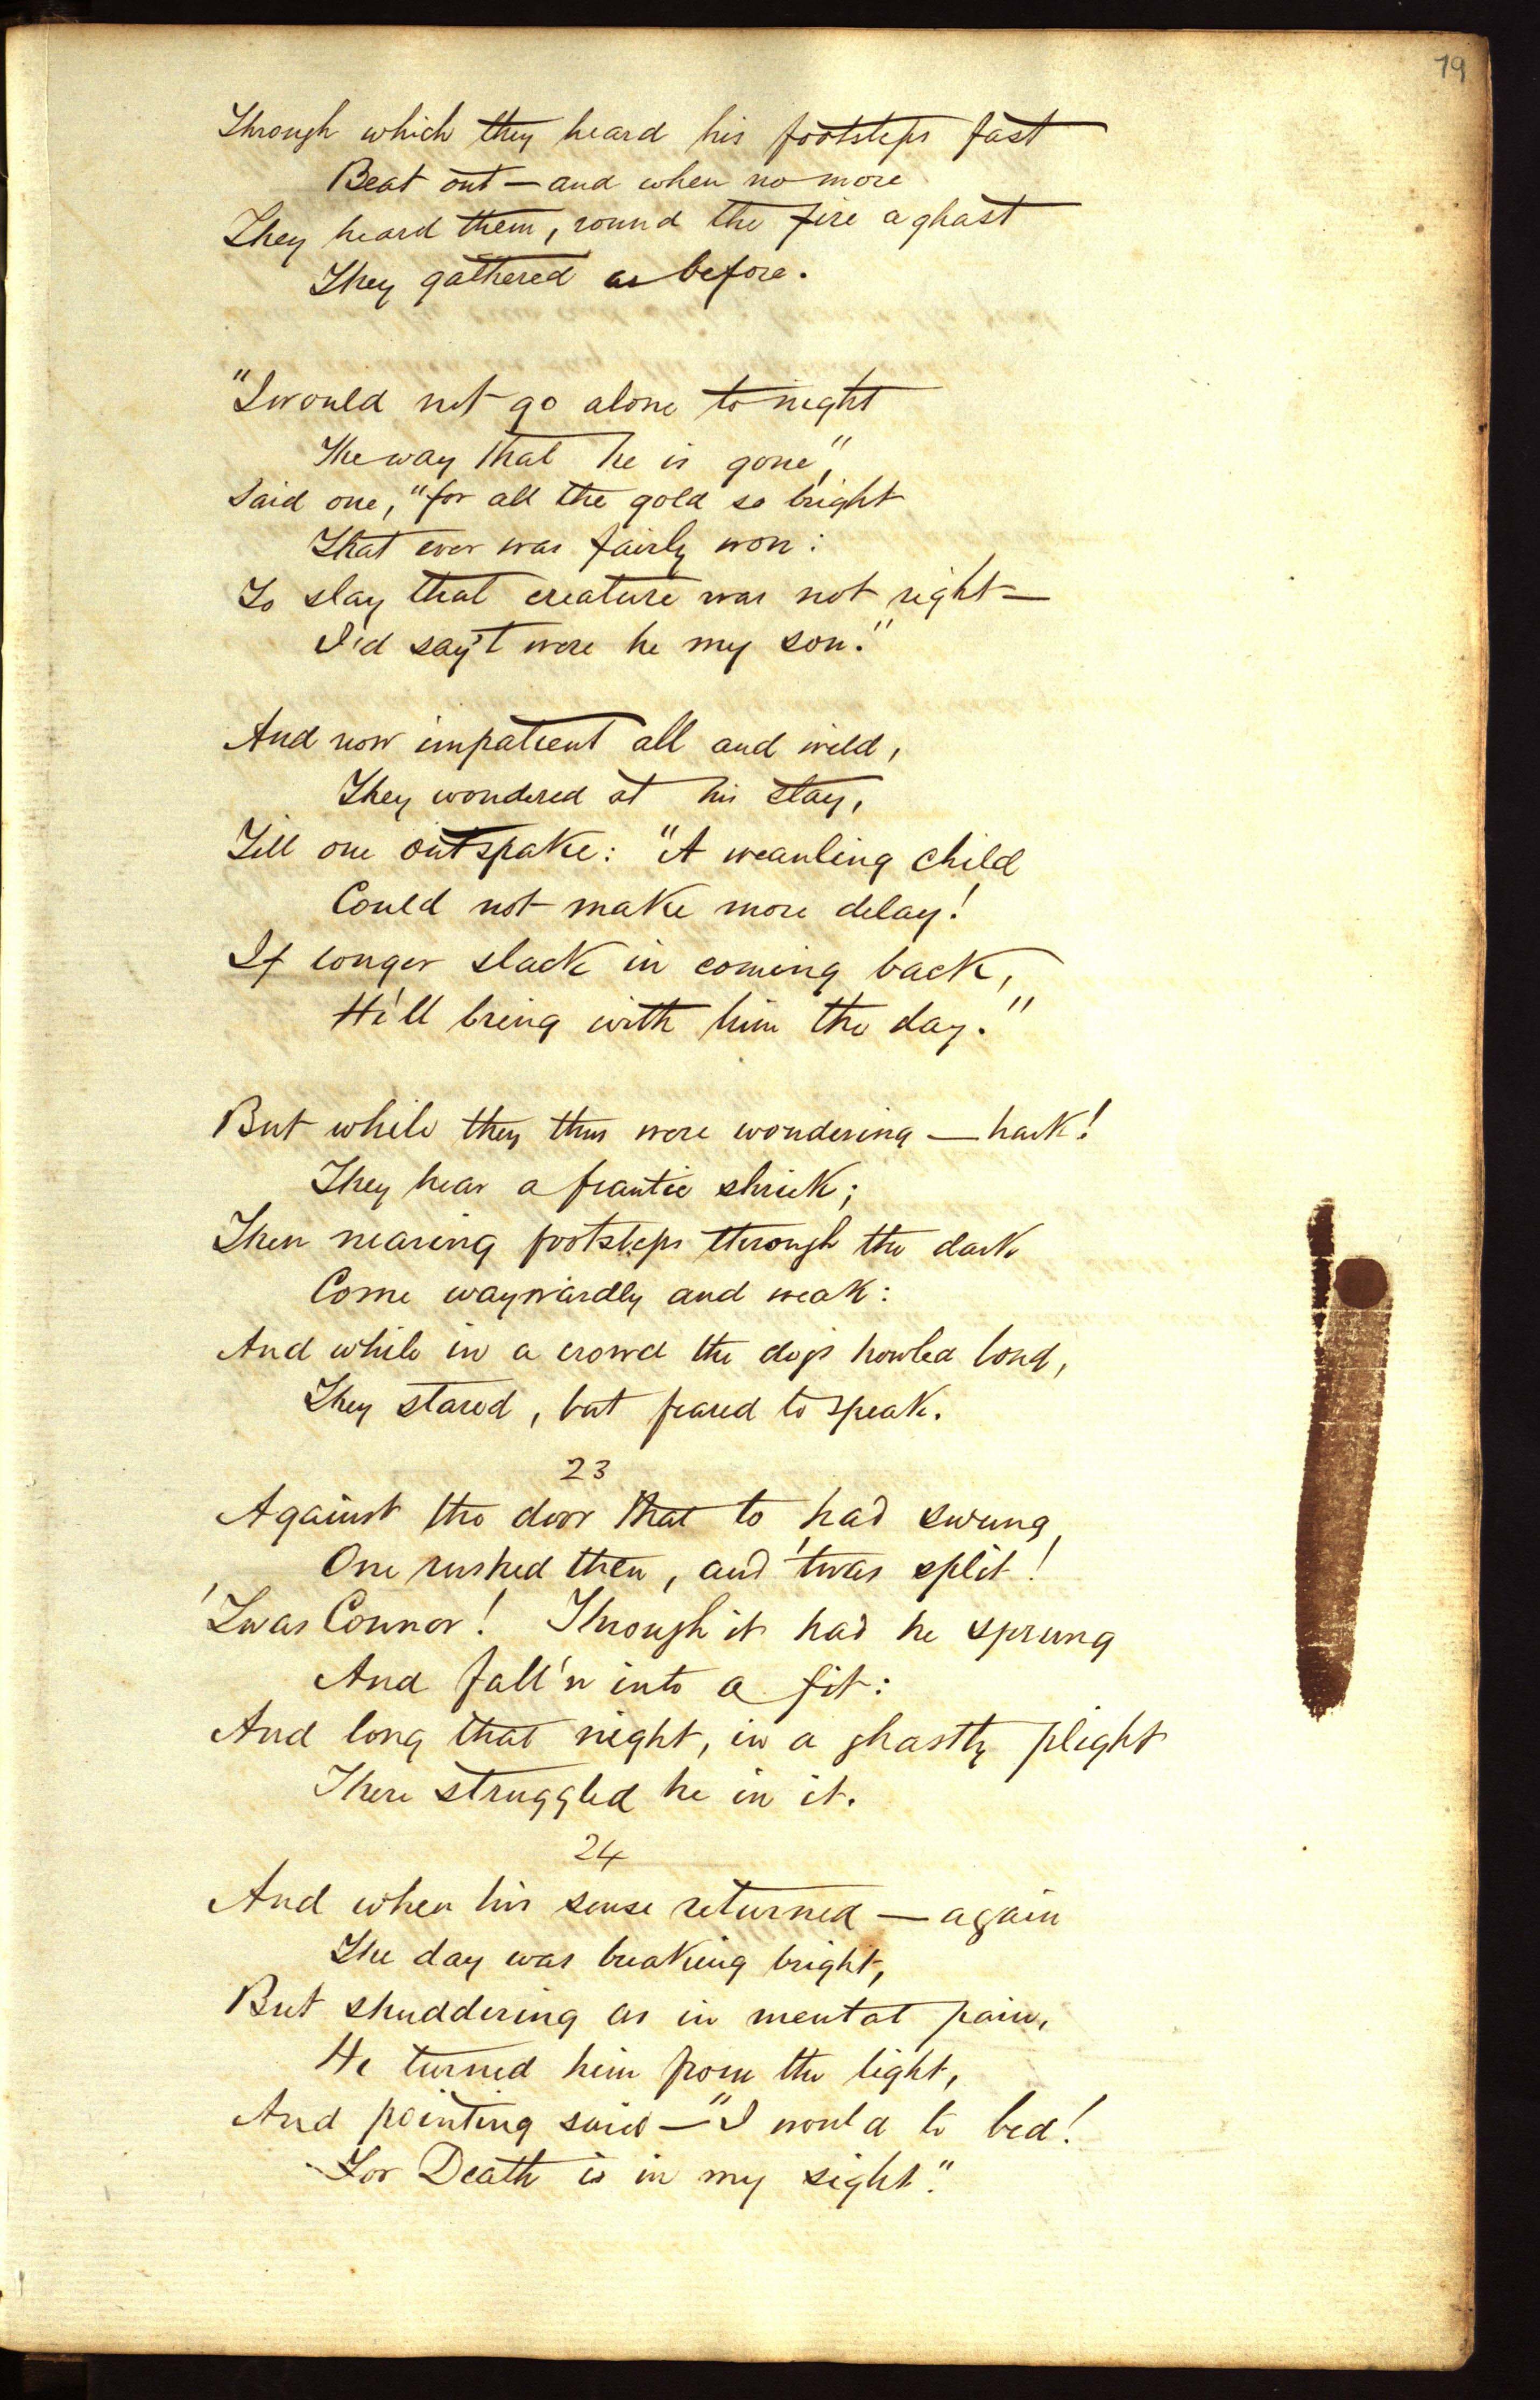 79
Through which they heard his footsteps fast
Beat out — and when no more
They heard them, round the fire aghast
They gathered as before.
"I would not go alone to night
The way that he is gone",
Said one, "for all the gold so bright
That ever was fairly won:
To slay that creature was not right —
I'd say't were he my son."
And now impatient all and wild,
They wondered at his stay,
Till one outspake: "A weanling child
Could not make more delay!
If longer slack in coming back,
He'll bring with him the day."
But while they thus were wondering — hark!
They hear a frantic shriek;
Then nearing footsteps through the dark
Come waywardly and weak:
And while in a crowd the dogs howled loud,
They stared, but feared to speak.
23
Against the door that to had swung,
One rushed then, and 'twas split!
'Twas Connor! Through it had he sprung
And fall'n into a fit:
And long that night, in a ghastly plight
There struggled he in it.
24
And when his sense returned — again
The day was breaking bright,
But shuddering as in mental pain,
He turned him from the light,
And pointing said — "I would to bed!
For Death is in my sight."